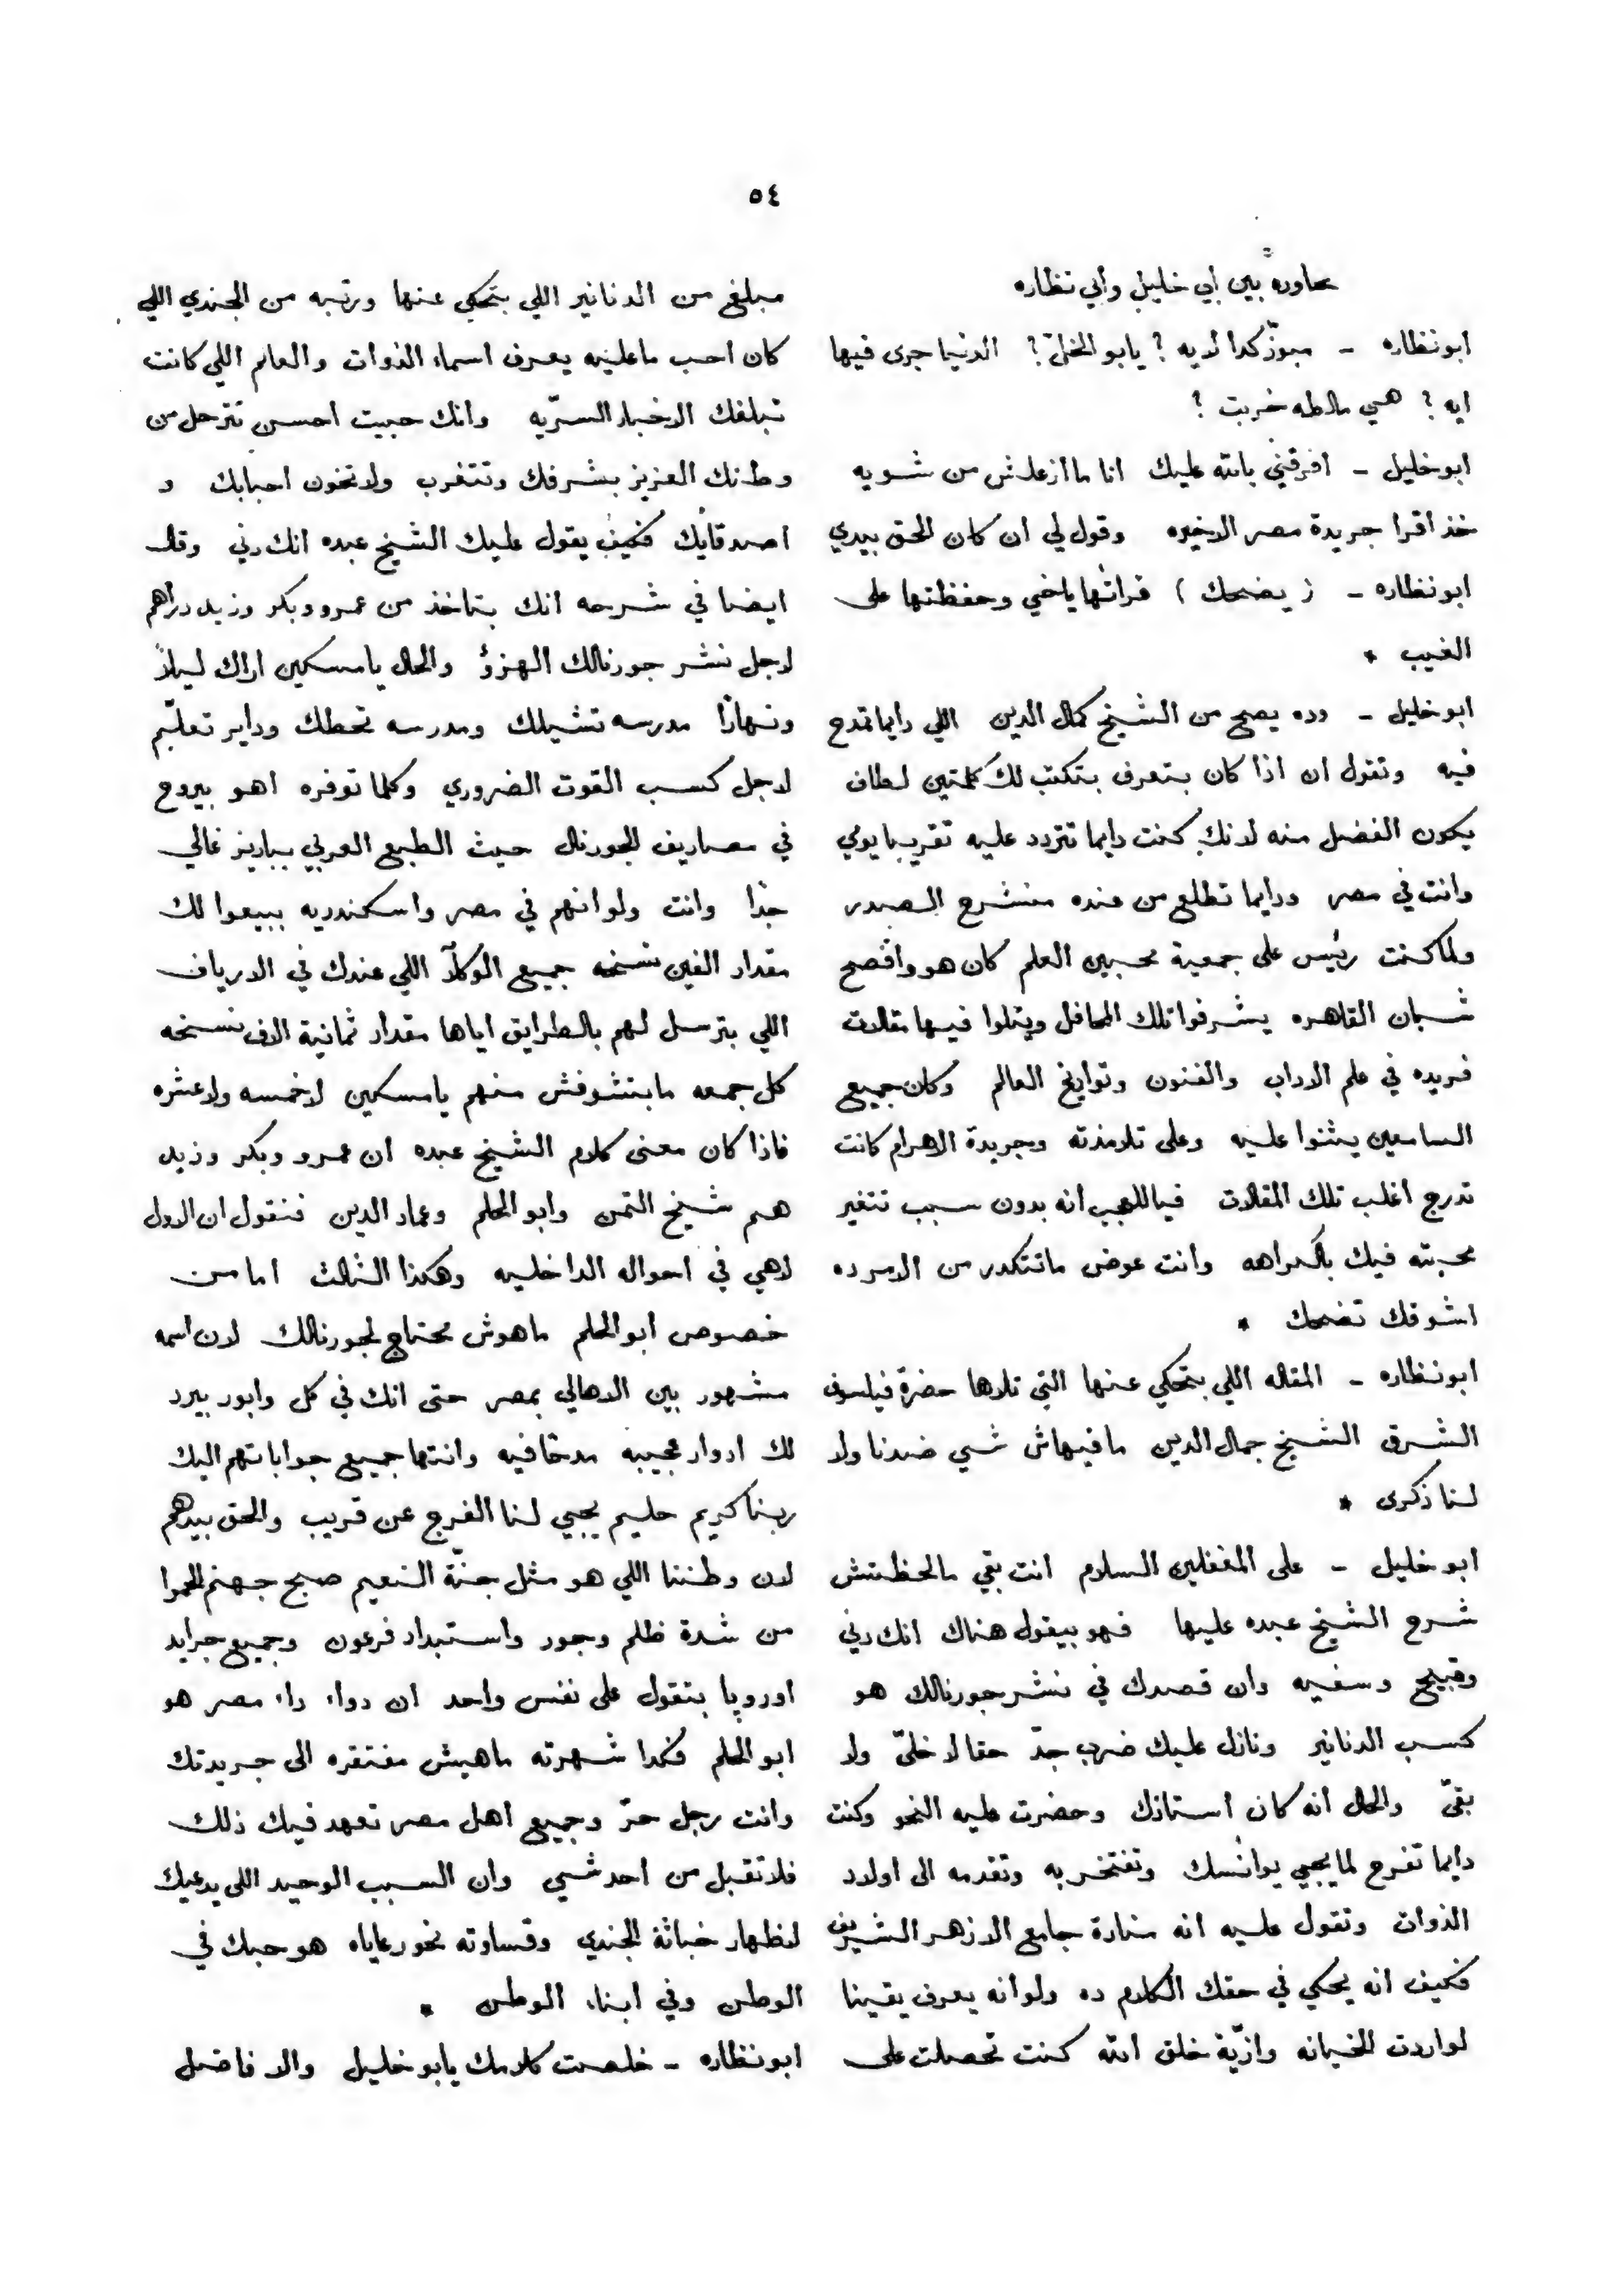 ٥٤
محاورة بين ابي خليل وأبي نظاره
ابونظاره ـ مبوّز كدا لايه ؟ يابو الخلّ ؟ الدنيا جرى فيها
ايه ؟ هي مالطه خربت ؟
ابوخليل ـ افرقني بالله عليك انا ماأزعلش من شويه
خذ اقرا جريدة مصر الاخيره وقول لي ان كان الحق بيدي
ابونظاره ـ ( يضحك ) قرائتها ياخي وحفظتها على
الغيب *
ابوخليل ـ وده يصح من الشيخ كمال الدين اللي دايما تمدح
فيه وتقول ان اذا كان بتعرف بتكتب لك كلمتين لطاف
يكون الفضل منه لانك كنت دايما تتردد عليه تقريبا يومي
وانت في مصر ودايما تطلع من عنده منشرح الصدر
ولما كنت رئيس على جمعية محبين العلم كان هو وافصح
شبان القاهره يشرفوا تلك المحافل ويتلوا فيها مقالات
فريده في علم الاداب والفنون وتواريخ العالم وكان جميع
السامعين يثنوا عليه وعلى تلامذته وجريدة الاهرام كانت
تدرج اغلب تلك المقالات فيا للعجب انه بدون سبب تتغير
محبته فيك بالكراهه وانت عوض ماتتكدر من الامر ده
اشوفك تضحك *
ابونظاره ـ المقاله اللي بتحكي عنها التي تلاها حضرة فيلسوف
الشرق الشيخ جمال الدين مافيهاش شي ضدنا ولا
لنا ذكرى *
ابوخليل ـ على المغفلين السلام انت بقي مالحظتش
شرح الشيخ عبده عليها فهو بيقول هناك انك دني
وقبيح وسفيه وان قصدك في نشر جورنالك هو
كسب الدنانير ونازل عليك ضرب جدّ حقا لا خلىّ ولا
بقىّ والحال انه كان استاذك وحضرت عليه النحو وكنت
دايما تفرح لما يجي يوانسك وتفتخر به وتقدمه الى اولاد
الذوات وتقول عليه انه منارة جامع الازهر الشريف
فكيف انه يحكي في حقك الكلام ده ولو انه يعرف يقينا
لو اردت الخيانه واذيّة خلق الله كنت تحصلت على
مبلغ من الدنانير اللي بتحكي عنها ورتبه من الجندي اللي
كان احب ماعليه يعرف اسماء الذوات والعالم اللي كانت
تبلغك الاخبار السرّيه وانك حبيت احسن تترحل من
وطنك العزيز بشرفك وتتغرب ولا تخون احبابك و
اصدقايك فكيف يقول عليك الشيخ عبده انك دني وقال
ايضا في شرحه انك بتاخذ من عمرو وبكر وزيد دراهم
لاجل نشر جورنالك الهزؤ والحال يا مسكين اراك ليلاً
ونهاراً مدرسه تشيلك ومدرسه تحطك وداير تعلّم
لاجل كسب القوت الضروري وكلما توفره اهو بيروح
في مصاريف الجورنال حيث الطبع العربي بباريز غالي
جداً وانت ولو انهم في مصر واسكندريه بيبيعوا لك
مقدار الفين نسخه جميع الوكلآ اللي عندك في الارياف
اللي بترسل لهم بالطرايق اياها مقدار ثمانية الاف نسخه
كل جمعه مابتشوفش منهم يا مسكين لا خمسه ولا عشره
فاذا كان معنى كلام الشيخ عبده ان عمرو وبكر وزيد
هم شيخ التمن وابو الحلم وعماد الدين فنقول ان الاول
لاهي في احواله الداخليه وهكذا الثالث اما من
خصوص ابو الحلم ماهوش محتاج لجورنالك لان اسمه
مشهور بين الاهالي بمصر حتى انك في كل وابور بيرد
لك ادوار عجيبه مدحا فيه وانتها جميع جواباتهم اليك
ربنا كريم حليم يجيي لنا الفرج عن قريب والحق بيدهم
لان وطننا اللي هو مثل جنّة النعيم صبح جهنم الحمرا
من شدة ظلم وجور واستبداد فرعون وجميع جرايد
اوروپا بتقول على نفس واحد ان دواء داء مصر هو
ابو الحلم فكدا شهرته ماهيش مفتقره الى جريدتك
وانت رجل حرّ وجميع اهل مصر تعهد فيك ذلك
فلا تقبل من احد شي وان السبب الوحيد اللي يدعيك
لاظهار خباثة الجندي وقساوته نحو رعاياه هو حبك في
الوطن وفي ابناء الوطن *
ابونظاره ـ خلصت كلامك يابو خليل والا فاضل